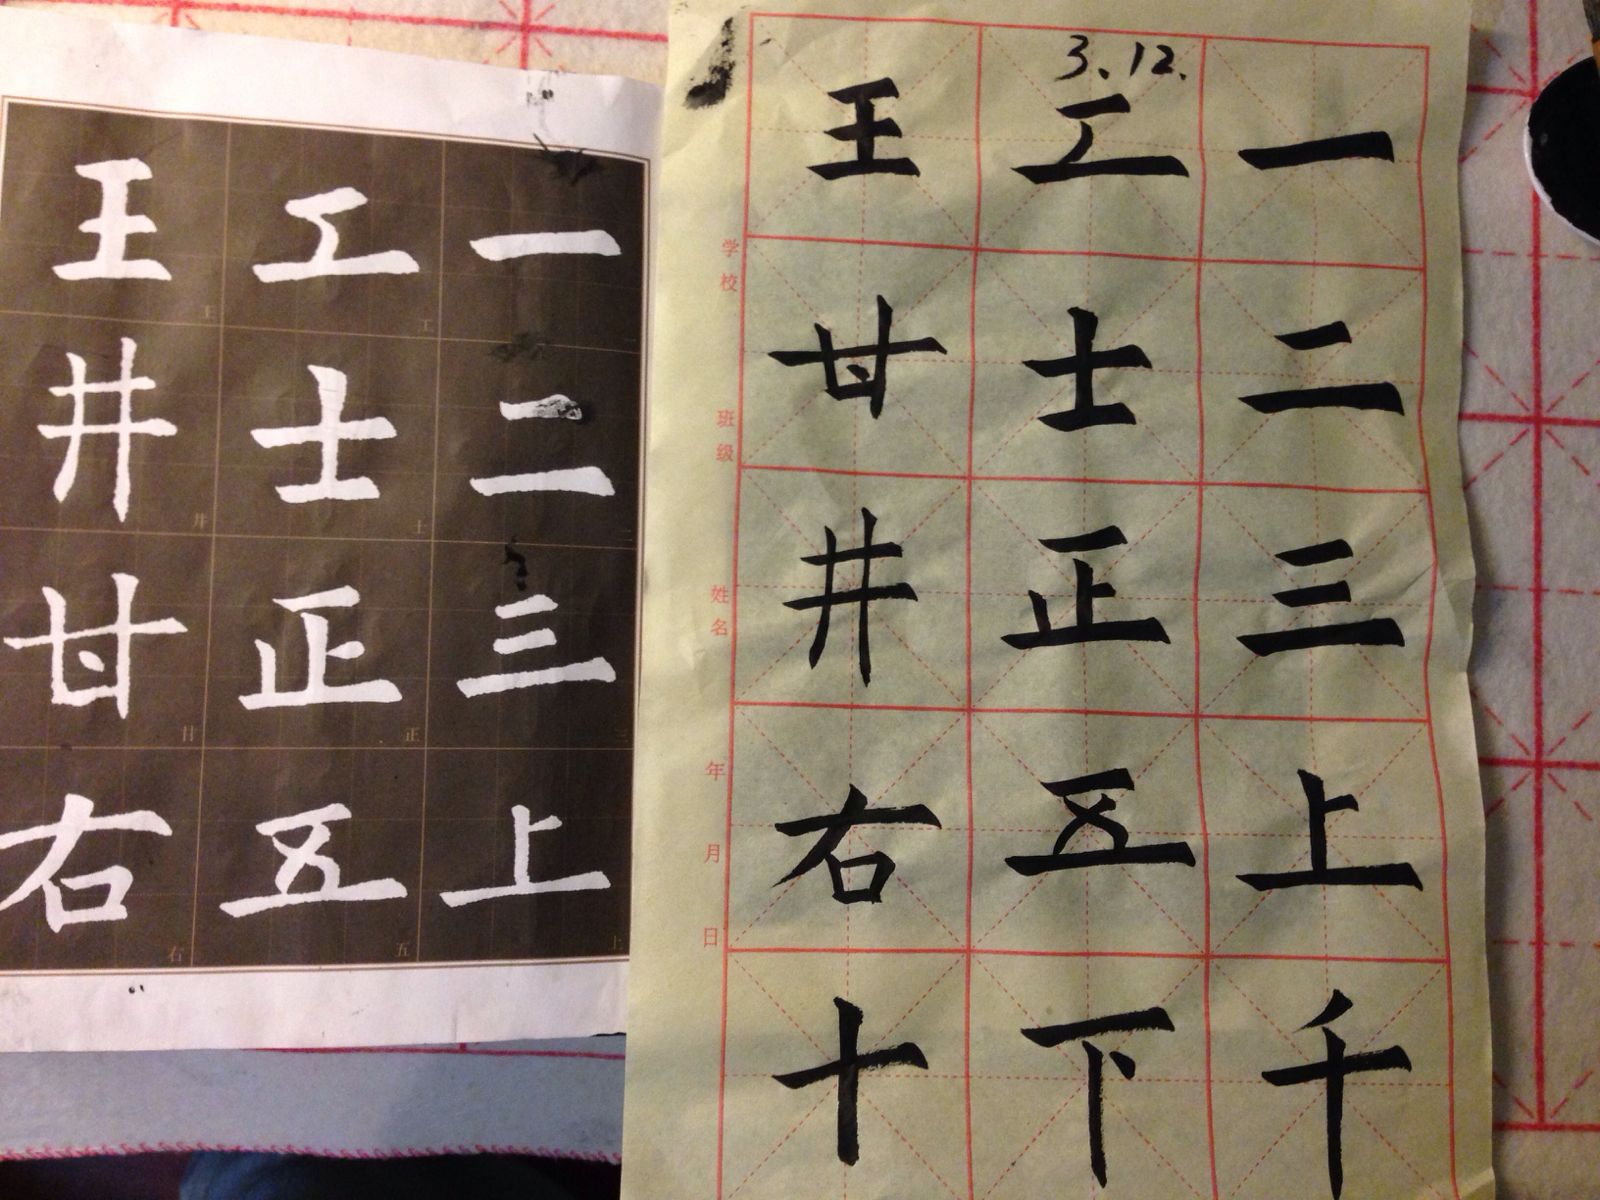 一二三上
二三上
工士正五
工士正五
王井甘右
王井甘右
3.12.
一二三上千
工士正五下
王甘井右十
学校 班级 姓名 年 月 日